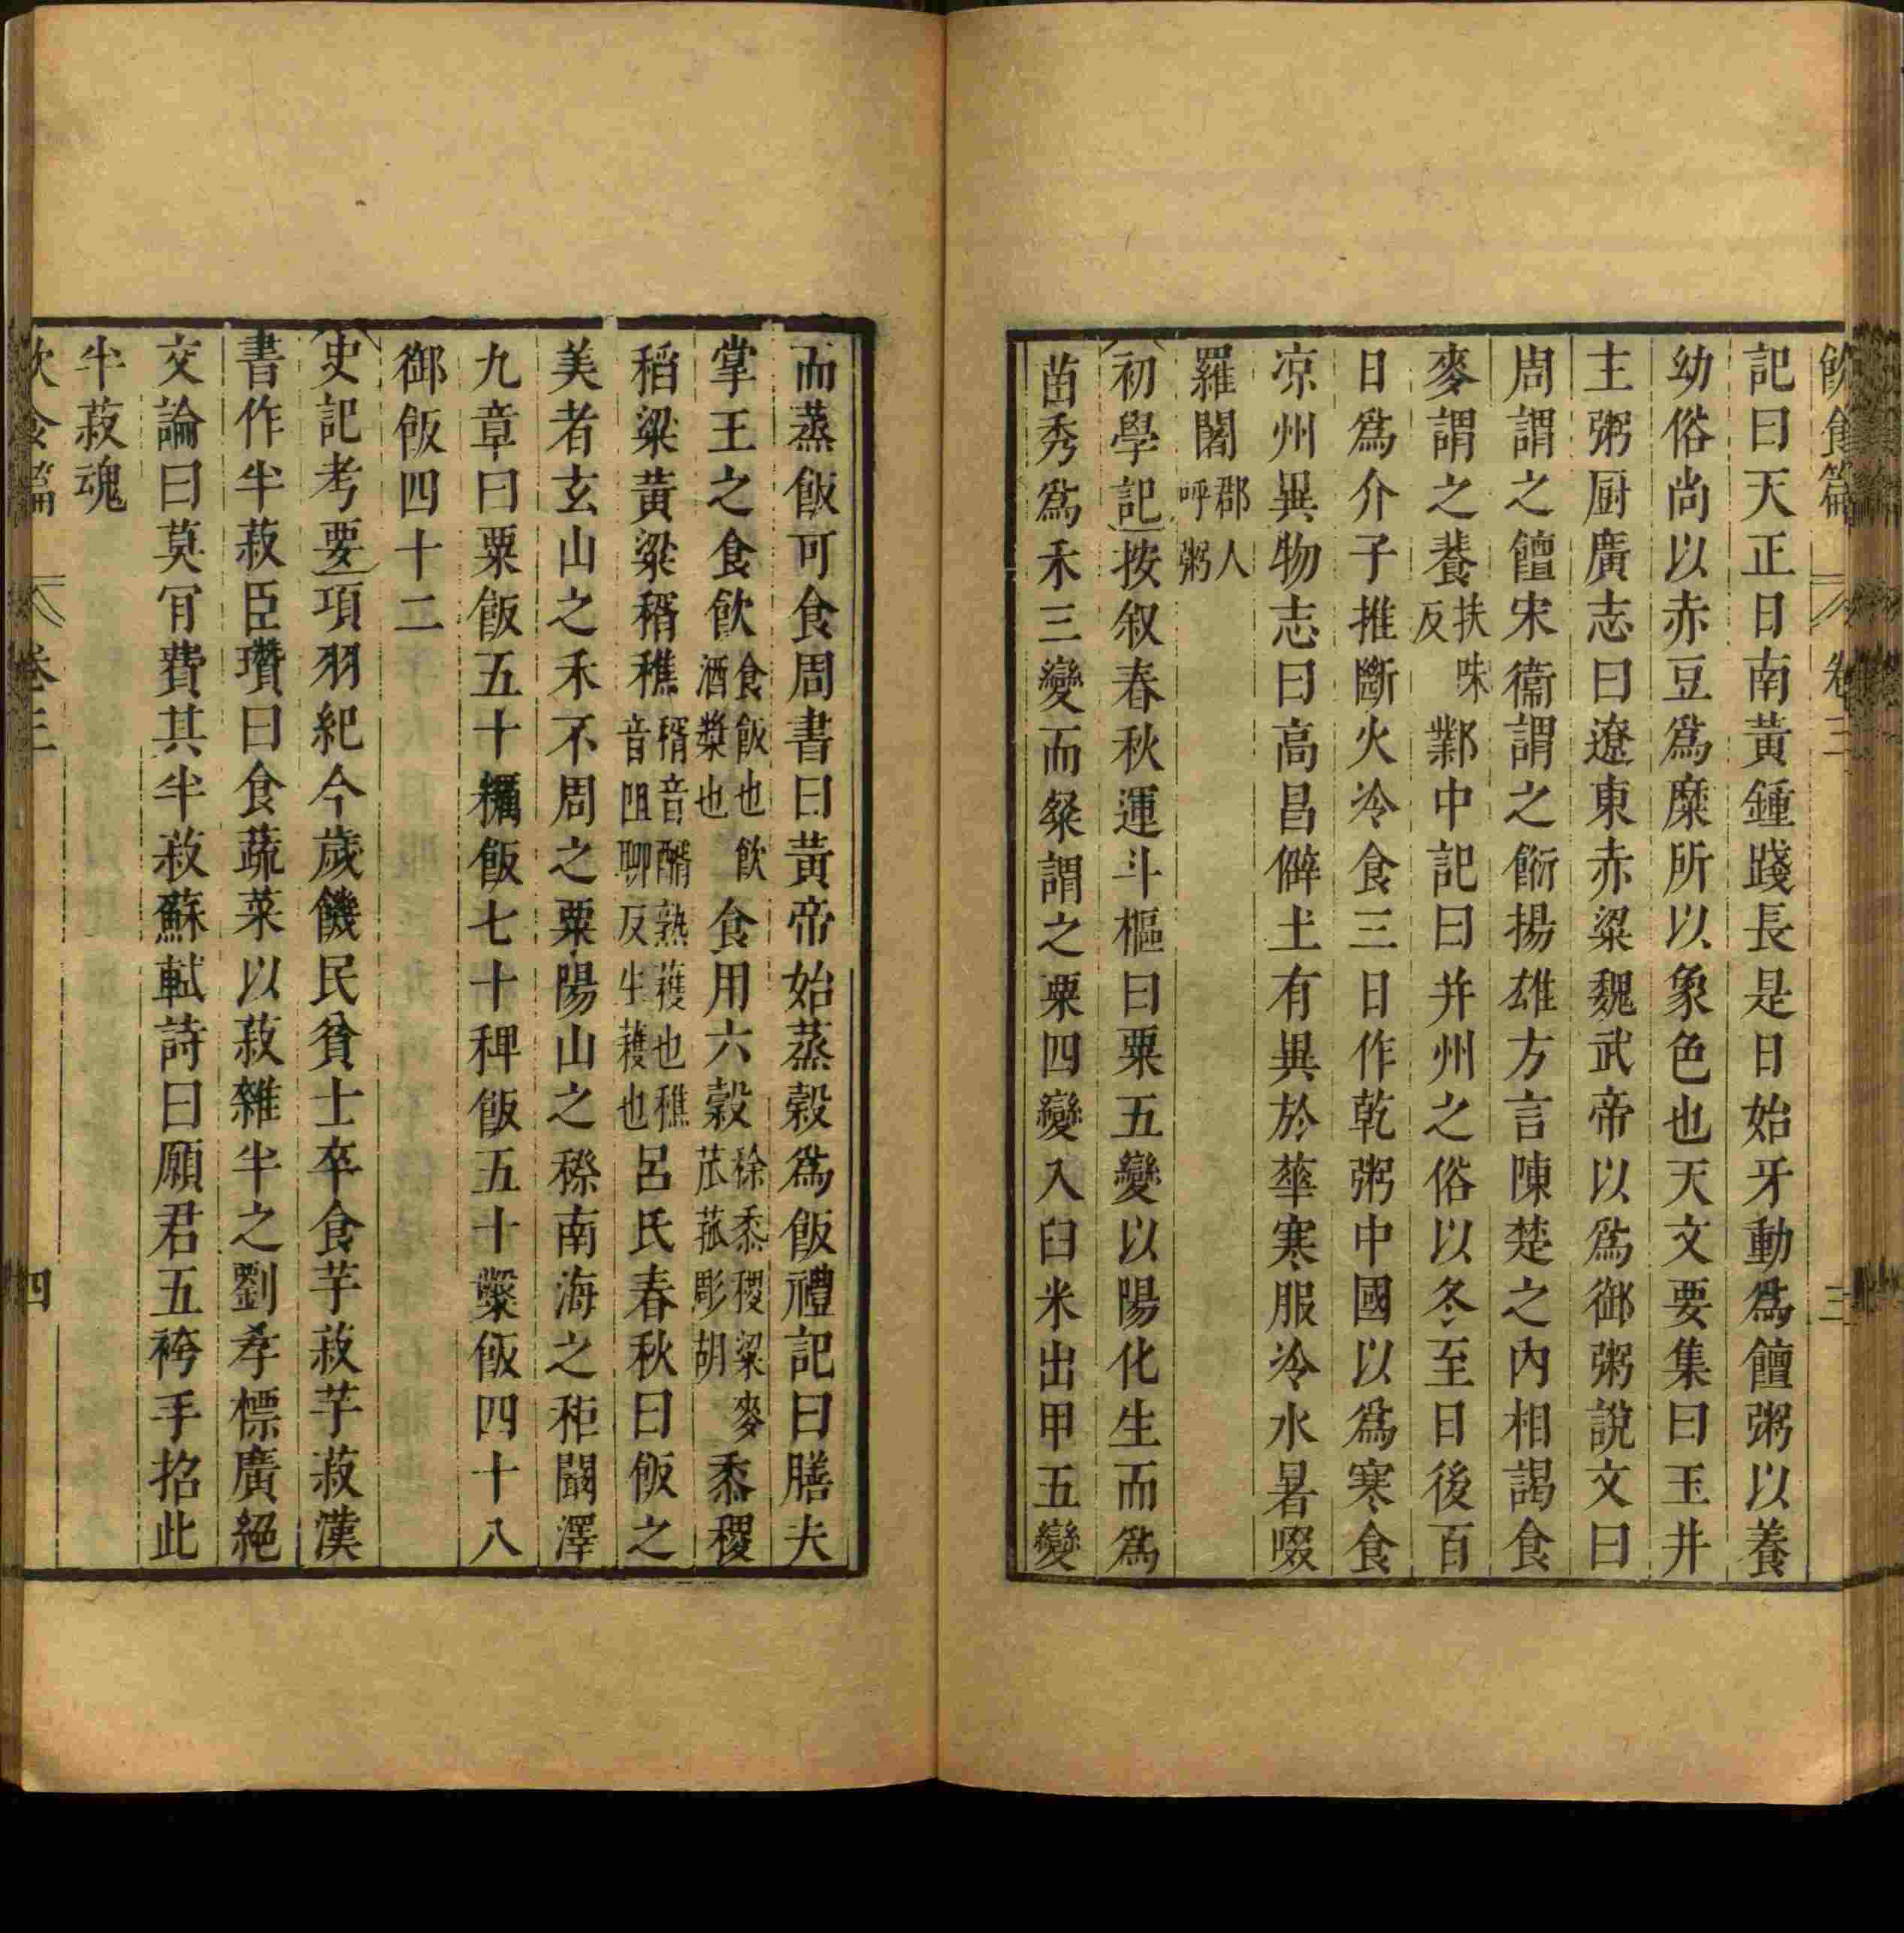 飲食篇 卷三 三
記曰天正日南黃鍾踐長是日始牙動爲饘粥以養
幼俗尚以赤豆爲糜所以象色也天文要集曰玉井
主粥厨廣志曰遼東赤粱魏武帝以爲御粥說文曰
周謂之饘宋衞謂之餰揚雄方言陳楚之內相謁食
麥謂之䬻扶味反鄴中記曰并州之俗以冬至日後百
日爲介子推斷火冷食三日作乾粥中國以爲寒食
凉州異物志曰高昌僻土有異於華寒服冷水暑啜
羅闍郡人呼粥
初學記按叙春秋運斗樞曰粟五變以陽化生而爲
苗秀爲禾三變而粲謂之粟四變入臼米出甲五變
而蒸飯可食周書曰黃帝始蒸穀爲飯禮記曰膳夫
掌王之食飲食飯也飲酒漿也食用六穀稌黍稷粱麥苽苽彫胡黍稷
稻粱黃粱稰穛稰音醑熟穫也穛音咀聊反生穫也呂氏春秋曰飯之
美者玄山之禾不周之粟陽山之穄南海之秬闞澤
九章曰粟飯五十糲飯七十稗飯五十糳飯四十八
御飯四十二
史記考要項羽紀今歲饑民貧士卒食芋菽芋菽漢
書作半菽臣瓚曰食蔬菜以菽雜半之劉孝標廣絕
交論曰莫肎費其半菽蘇軾詩曰願君五袴手招此
半菽魂
飲食篇 卷三 四